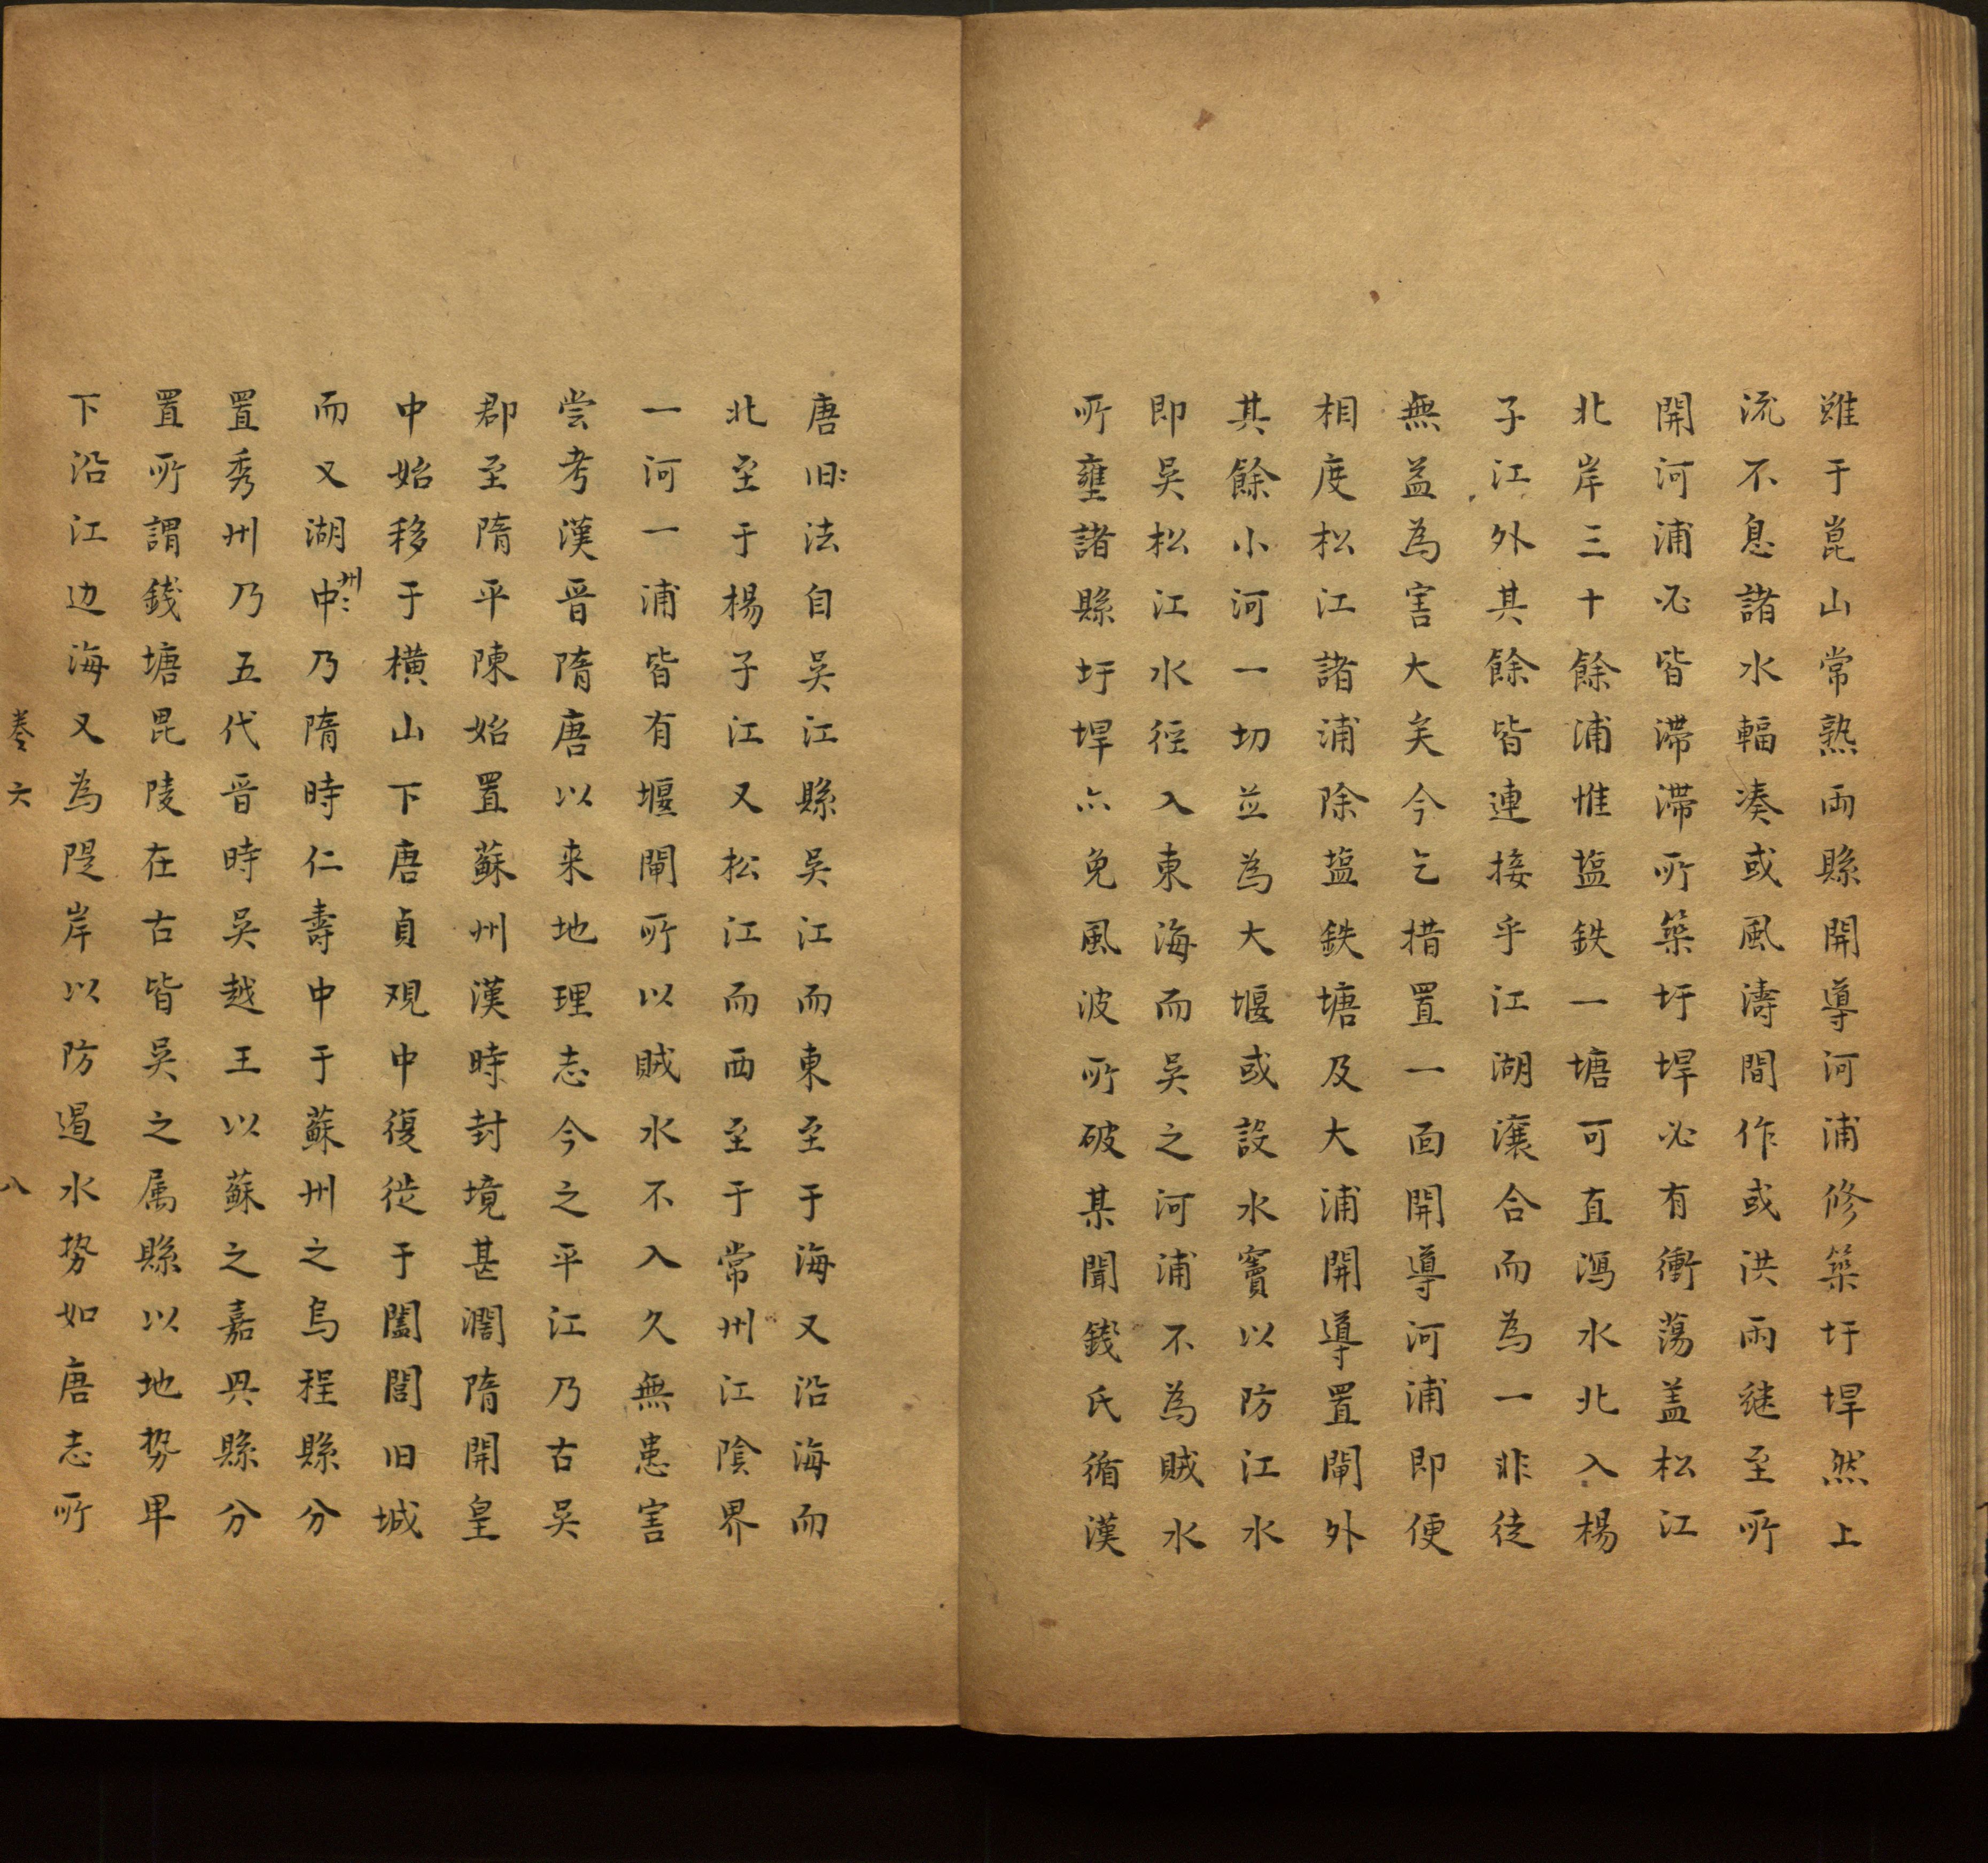 雖于崑山常熟兩縣開導河浦修築圩垾然上
流不息諸水輻凑或風濤間作或洪雨継至所
開河浦必皆滯滯所築圩垾必有衝蕩盖松江
北岸三十餘浦惟塩鉄一塘可直瀉水北入楊
子江外其餘皆連接乎江湖瀼合而為一非徒
無益為害大矣今乞措置一面開導河浦即便
相度松江諸浦除塩鉄塘及大浦開導置閘外
其餘小河一切並為大堰或設水竇以防江水
即吳松江水徑入東海而吳之河浦不為賊水
所壅諸縣圩垾亦免風波所破某聞錢氏循漢
唐旧法自吳江縣吳江而東至于海又沿海而
北至于楊子江又松江而西至于常州江陰界
一河一浦皆有堰閘所以賊水不入久無患害
尝考漢晉隋唐以来地理志今之平江乃古吳
郡至隋平陳始置蘇州漢時封境甚濶隋開皇
中始移于橫山下唐貞观中復徙于闔閭旧城
而又湖中州乃隋時仁壽中于蘇州之烏程縣分
置秀州乃五代晉時吳越王以蘇之嘉興縣分
置所謂錢塘毘陵在古皆吳之属縣以地势卑
下沿江边海又為隄岸以防遏水势如唐志所
卷六
八